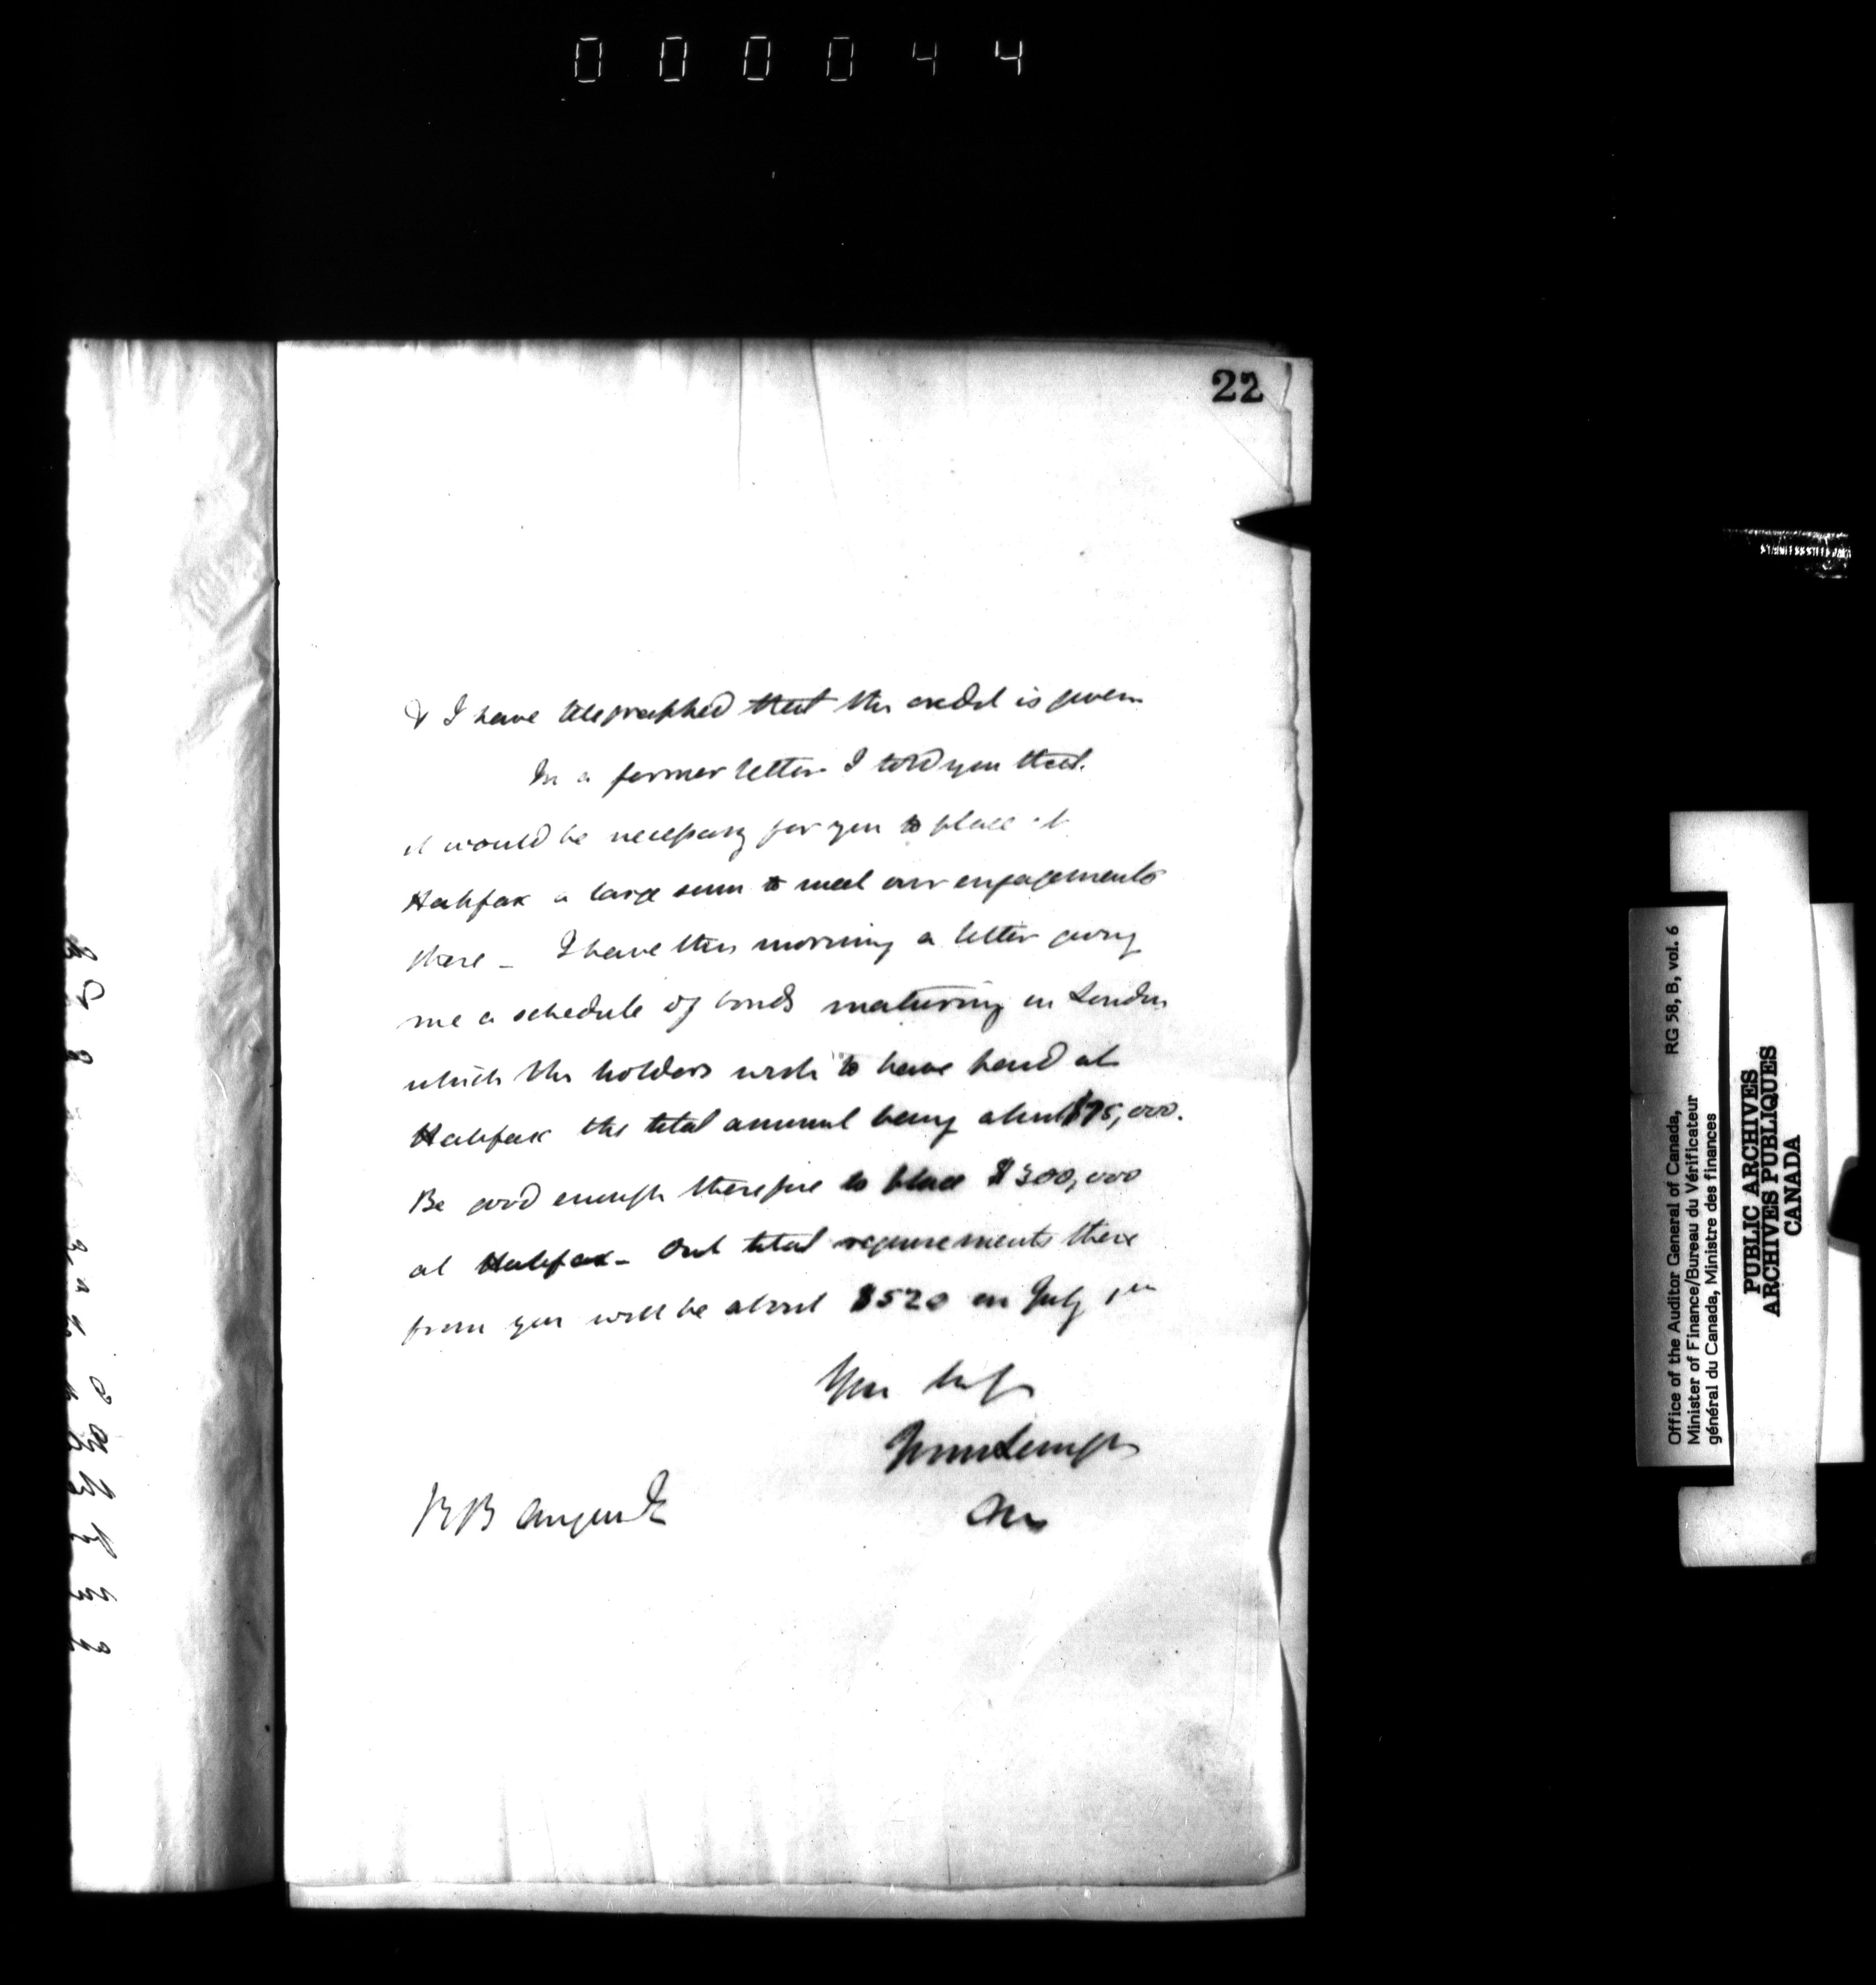 000044
22
& I have telegraphed that the credit is given
In a former letter I told you that
it would be necessary for you to place at
Halifax a large sum to meet our engagements
there – I have this morning a letter giving
me a schedule of bonds maturing in London
which the holders wish to have paid at
Halifax the total amount being about $75,000.
Be good enough therefore to place $300,000
at Halifax – Our total requirements there
from you will be about $520 on July 1st
Yours truly
JM Langton
Aud
R B Angus Esq
Office of the Auditor General of Canada, RG 58, B, vol. 6
Minister of Finance/Bureau du Vérificateur
général du Canada, Ministre des finances
PUBLIC ARCHIVES
ARCHIVES PUBLIQUES
CANADA